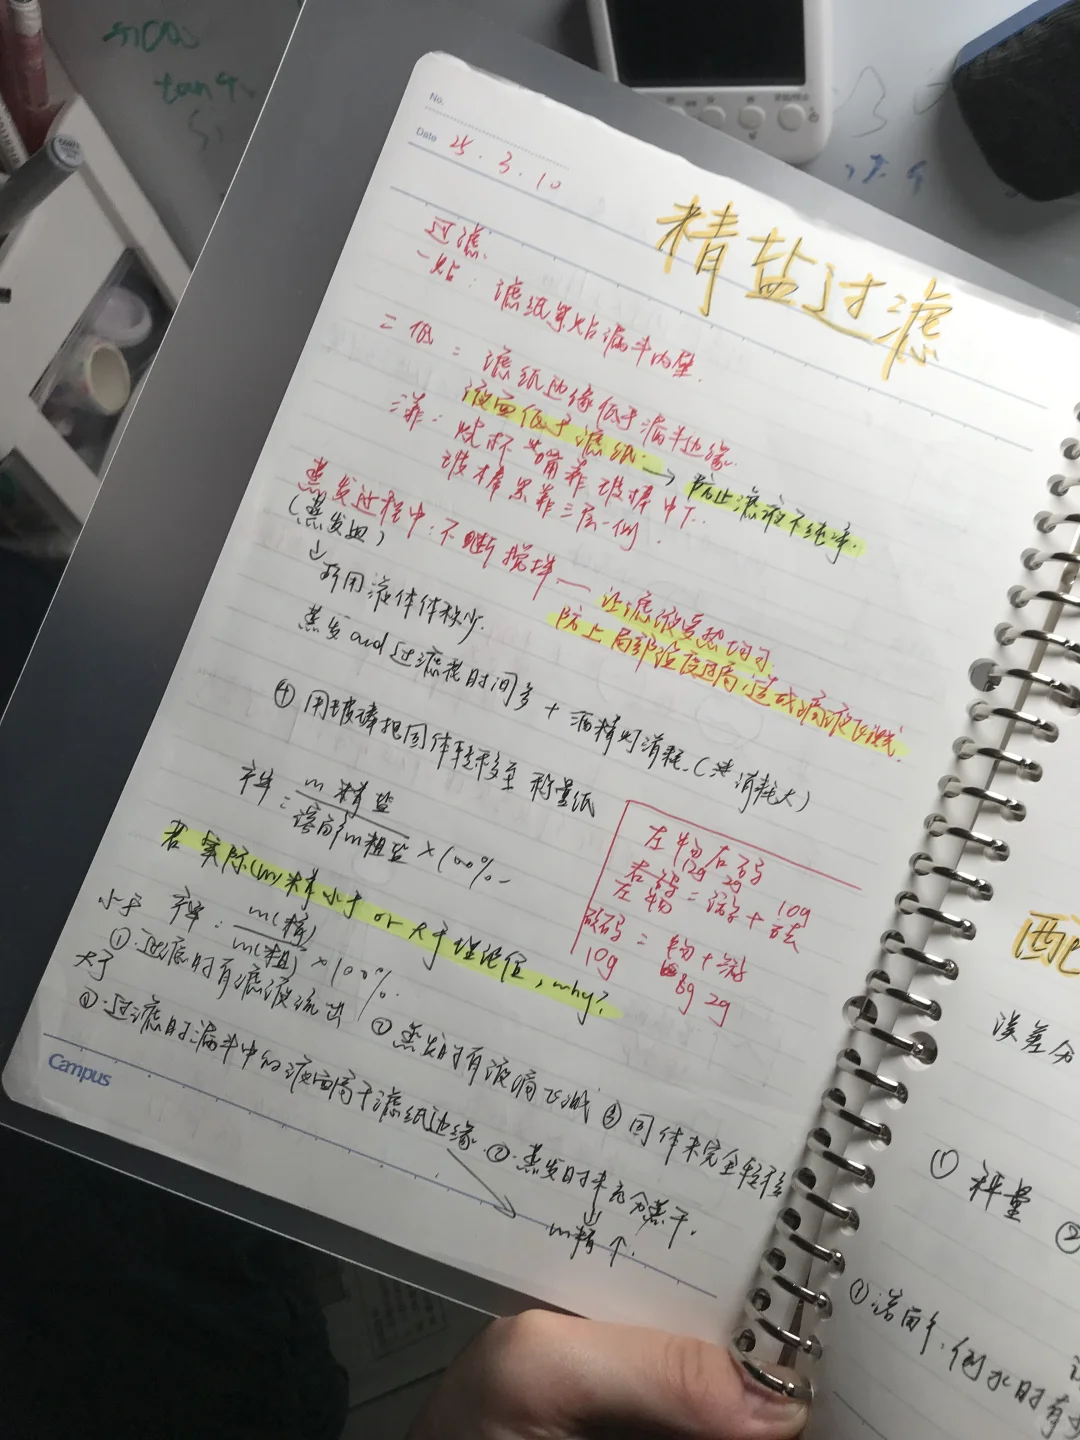 No.
Date 25.3.10
精盐过滤
过滤:
一贴: 滤纸紧贴漏斗内壁.
二低: 滤纸边缘低于漏斗边缘.
液面低于滤纸. → 防止滤液不纯净.
三靠: 烧杯嘴靠玻棒中下.
玻棒紧靠三层一侧.
蒸发过程中: 不断搅拌 — 让滤液受热均匀.
防止局部温度过高,造成滴液飞溅.
(蒸发皿)
↓
所用液体体积少.
蒸发and过滤耗时间多 + 酒精灯消耗.(消耗大)
④ 用玻璃把固体转移至称量纸
产率: m精盐
溶解m粗盐 ×100%
左物右码
12g 2g 10g
右码
左物 = 游 +
砝码 = 物 + 游
10g 8g 2g
若实际(m)精小于 or 大于理论值, why?
产率: m(精)
m(粗) ×100%.
小于
①.过滤时有滤液流出 ② 蒸发时有液滴飞溅 ③ 固体未完全转移
大于
①.过滤时漏斗中的液面高于滤纸边缘. ②.蒸发时未充分蒸干.
↓
m精↑.
Campus
配
误差分
① 称量 ②
倒水时有